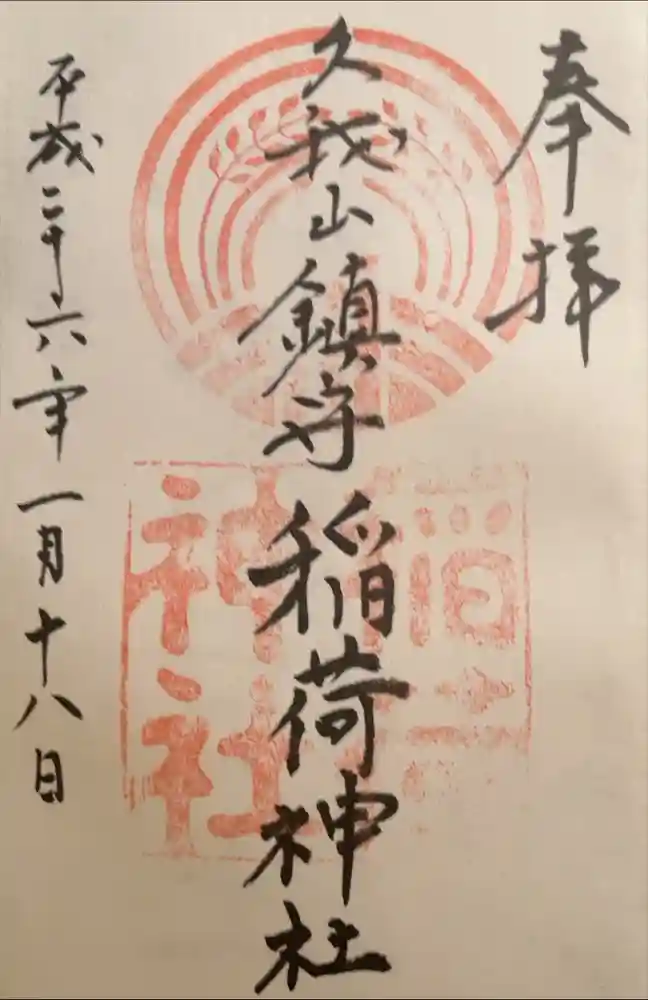 奉拝
久我山鎮守稲荷神社
平成二十六年一月十八日
稲荷神社